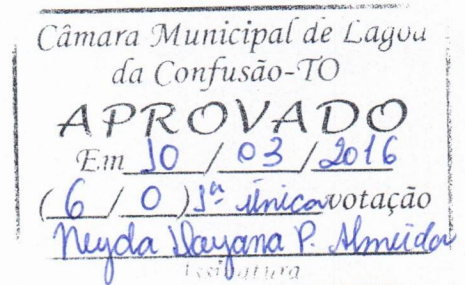 Câmara Municipal de Lagoa
da Confusão-TO
APROVADO
Em 10 / 03 / 2016
( 6 / 0 ) 1ª única votação
Neyda Dayana P. Almeida
Assinatura